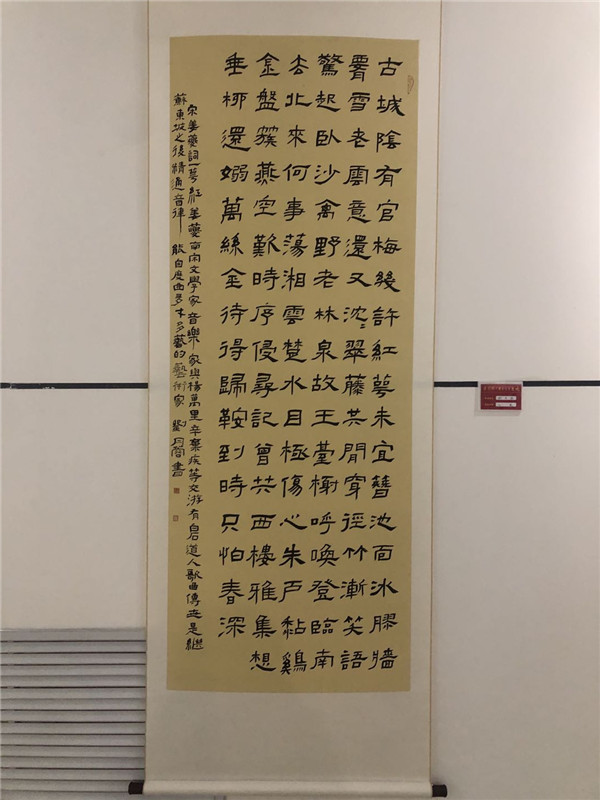 古城陰有官梅幾許紅萼未宜簪池面冰膠牆
腰雪老雲意還又沈沈翠藤共閒穿徑竹漸笑語
驚起臥沙禽野老林泉故王臺榭呼喚登臨南
去北來何事蕩湘雲楚水目極傷心朱戶黏鷄
金盤簇燕空歎時序侵尋記曾共西樓雅集想
垂柳還嫋萬絲金待得歸鞍到時只怕春深
宋姜夔詞一萼紅姜夔南宋文學家音樂家與楊萬里辛棄疾等交游有白石道人歌曲傳世是繼
蘇東坡之後精通音律能自度曲多才多藝的藝術家 劉月書